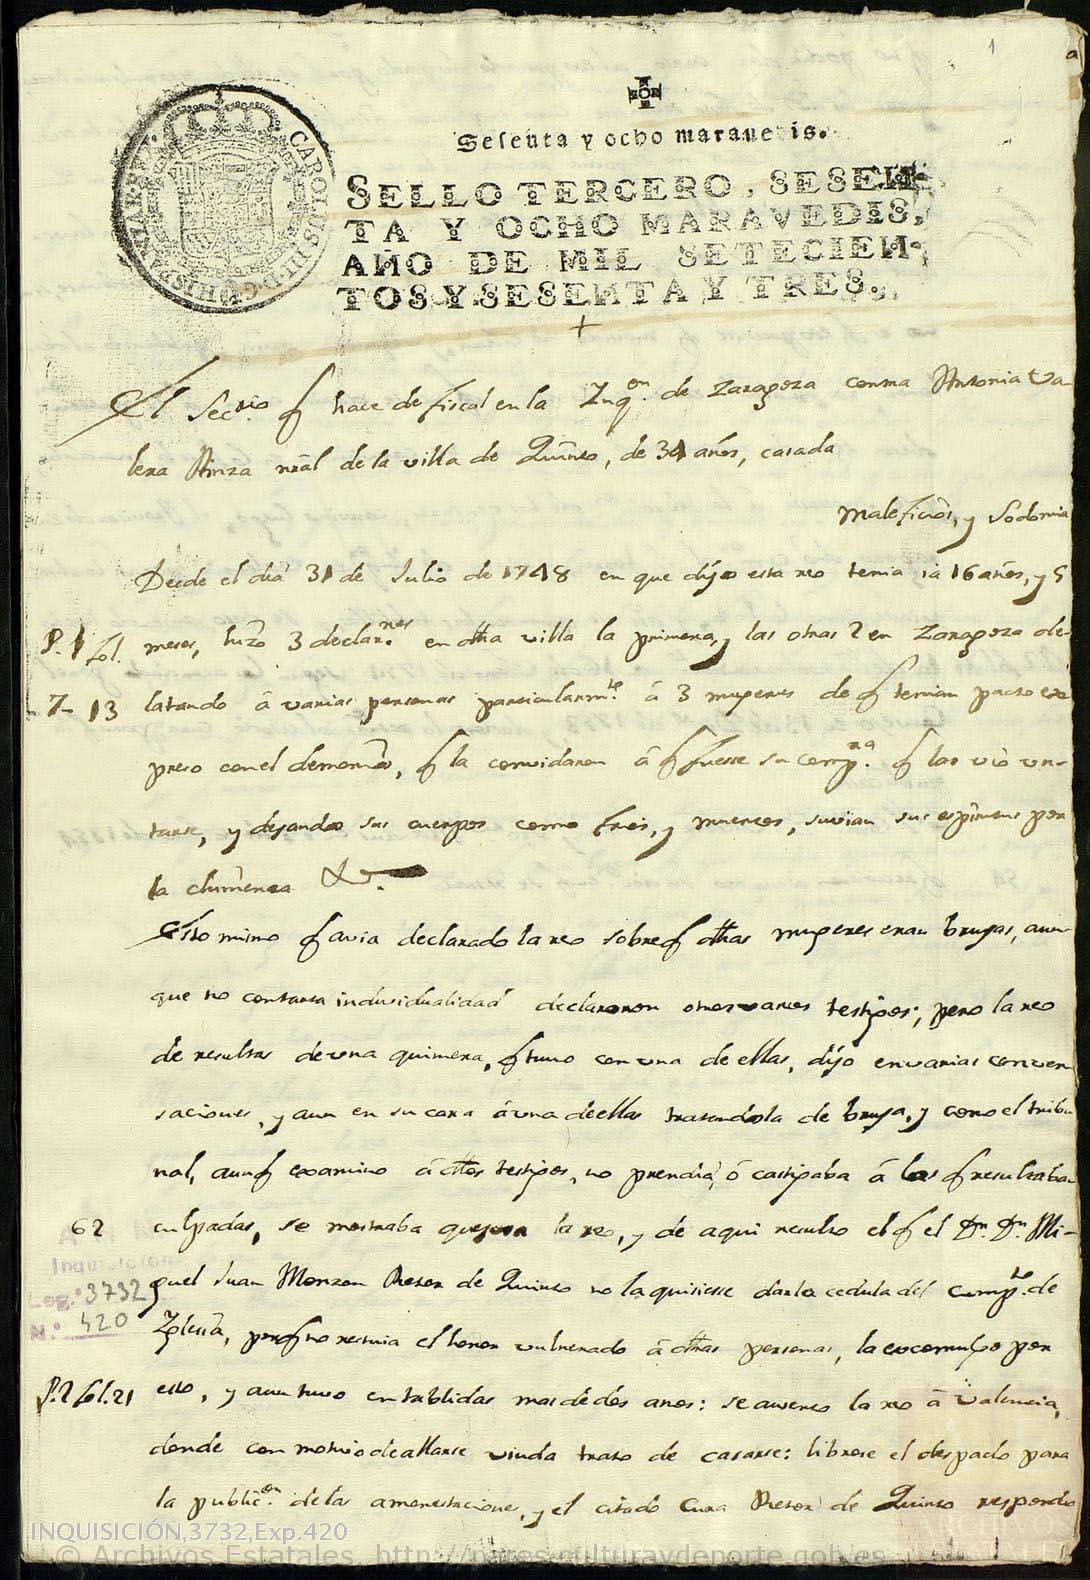 1
Sesenta y ocho maravedis.
SELLO TERCERO, SESEN-
TA Y OCHO MARAVEDIS,
AÑO DE MIL SETECIEN-
TOS Y SESENTA Y TRES.
CAROLUS III D G HISPANIAR REX
El Secrio q hace de fiscal en la Inqon de Zaragoza contra Antonia Va-
lera Ainza nral de la villa de Quinto, de 31 años, casada
Maleficios, y Sodomia
Desde el dia 31 de Julio de 1748 en que dijo esta reo tenia ia 16 años, y 5
P. 1 fol. meses, hizo 3 declarnes en dha villa la primera, y las otras 2 en Zaragoza de-
7 13 latando â varias personas particularmte â 3 mugeres de q tenian pacto ex-
preso con el demonio, q la convidaron â q fuesse su compra q las vio un-
tarse, y dejando sus cuerpos como frios, y muertos, suvian sus espiritus por
la chimenea &.
Esto mismo q avia declarado la reo sobre q dhas mugeres eran brujas, aun-
que no con tanta individualidad declararon otros varios testigos; pero la reo
de resultas de una quimera, q tuvo con una de ellas, dijo en varias conver-
saciones, y aun en su cara â una de ellas tratandola de bruja, y como el tribu-
nal, aunq examino â dhos testigos, no prendia, ô castigaba â las q resultaban
62 culpadas, se mostraba quejosa la reo, y de aqui resulto el q el Dn. Dn. Mi-
guel Juan Monzon Retor de Quinto no la quisiesse darla cedula del compto de
Iglesia, porq no restituia el honor vulnerado â dhas personas, la excomulgo por
P. 2 fol. 21 esto, y aun tuvo en tablillas mas de dos años: se ausento la reo â Valencia,
donde con motivo de allarse viuda trato de casarse: librose el despacho para
la publicon de las amonestaciones, y el citado Cura Retor de Quinto respondio
Inquisicion
Leg.º 3732
N.º 420
INQUISICIÓN,3732,Exp.420
© Archivos Estatales, http://pares.culturaydeporte.gob.es